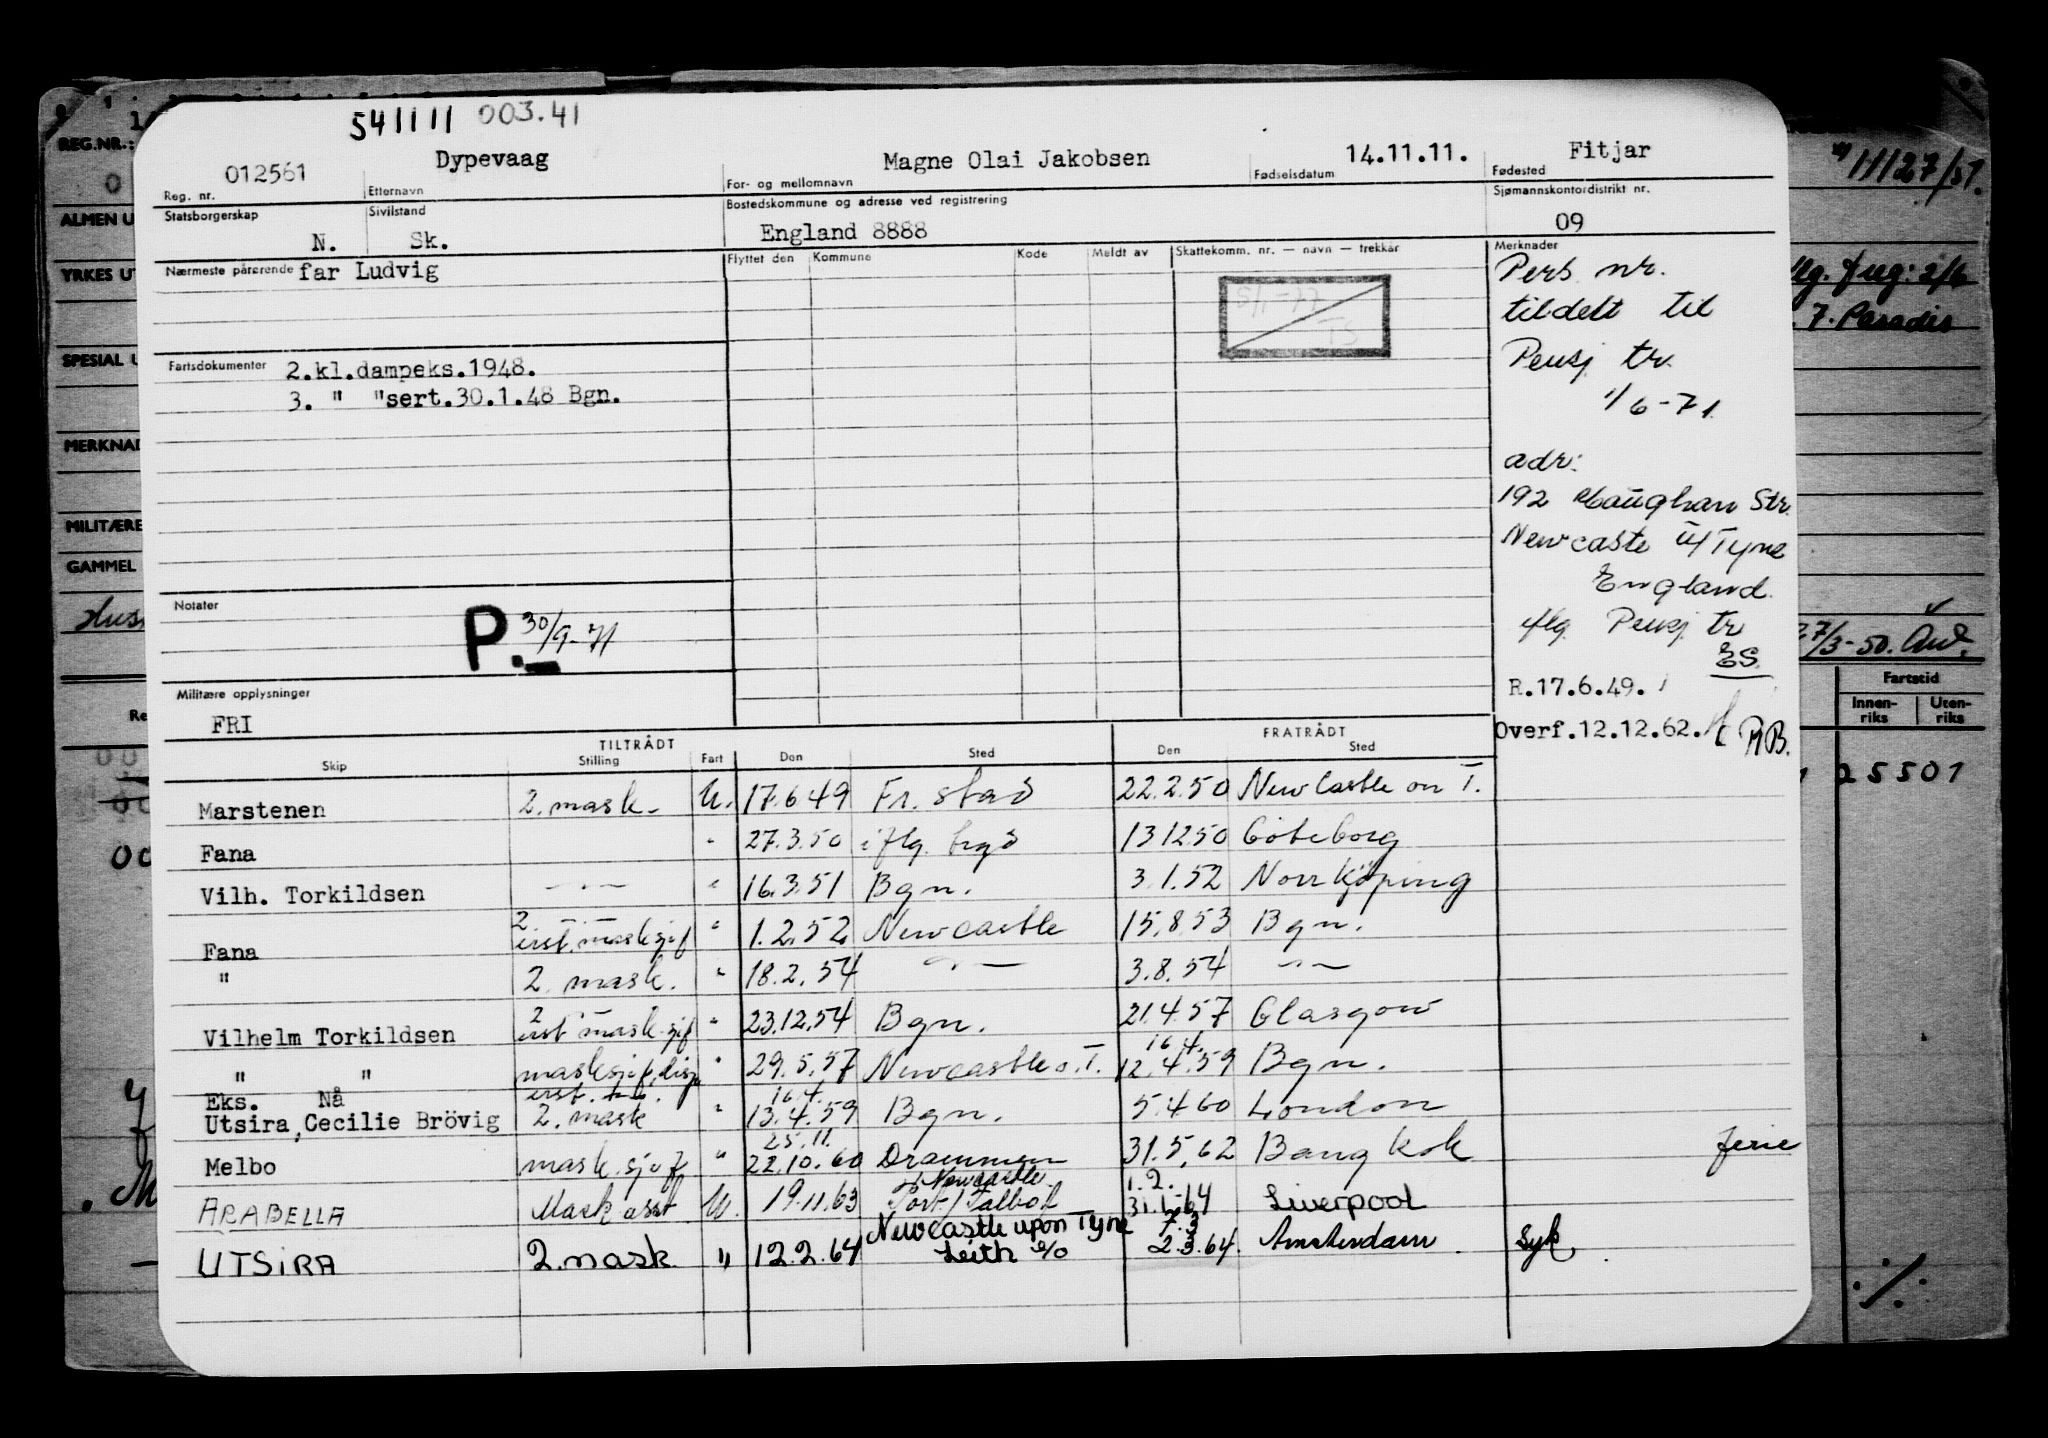 541111 003.41
012561 Dypevaag Magne Olai Jakobsen 14.11.11. Fitjar
Reg. nr. Etternavn For- og mellomnavn Fødselsdatum Fødested
Statsborgerskap Sivilstand Bostedskommune og adresse ved registrering Sjømannskontordistrikt nr.
N. Sk. England 8888 09
Nærmeste pårørende far Ludvig
Flyttet den Kommune Kode Meldt av Skattekomm. nr. — navn — trekkar
Merknader
Pers nr.
tildelt til
Pensj tr.
1/6-71
adr:
192 Maughan Str.
Newcaste u/Tyne
England.
flg. Pensj tr
ES.
R.17.6.49.
Overf.12.12.62. RB.
Fartsdokumenter 2.kl.dampeks.1948.
3. " "sert.30.1.48 Bgn.
Notater
P. 30/9-71
Militære opplysninger
FRI
TILTRÅDT FRATRÅDT
Skip Stilling Fart Den Sted Den Sted
Marstenen 2. mask. U. 17.6.49 Fr. stad 22.2.50 New Castle on T.
Fana " 27.3.50 iflg. brgd 13.12.50 Göteborg
Vilh. Torkildsen —"— " 16.3.51 Bgn. 3.1.52 Norrkjöping
Fana 2. erst. masksjef " 1.2.52 Newcastle 15.8.53 Bgn.
" 2. mask. " 18.2.54 —"— 3.8.54 —"—
Vilhelm Torkildsen 2 erst mask.sjef " 23.12.54 Bgn. 21.4.57 Glasgow
" " masksjef, disp. erst. " 29.5.57 Newcastle o.T. 16.4. 12.4.59 Bgn.
Eks. Nå
Utsira, Cecilie Brövig 2. mask " 16.4. 13.4.59 Bgn. 5.4.60 London
Melbo mask.sjef " 25.11. 22.10.60 Drammen 31.5.62 Bangkok ferie
ARABELLA Mask asst U. 19.11.63 Newcastle Port/Talbot 1.2. 31.1.64 Liverpool
UTSIRA 2. mask " 12.2.64 Newcastle upon Tyne Leith 7.3 2.3.64. Amsterdam Syk.
REG.NR.:
ALMEN U
YRKES UT
SPESIAL U
MERKNAD
MILITÆRE
GAMMEL
11127/51.
flg. fueg: 2/6
. 7. Paradis
27/3-50.
Fartstid
Innen-riks Uten-riks
25501
./.